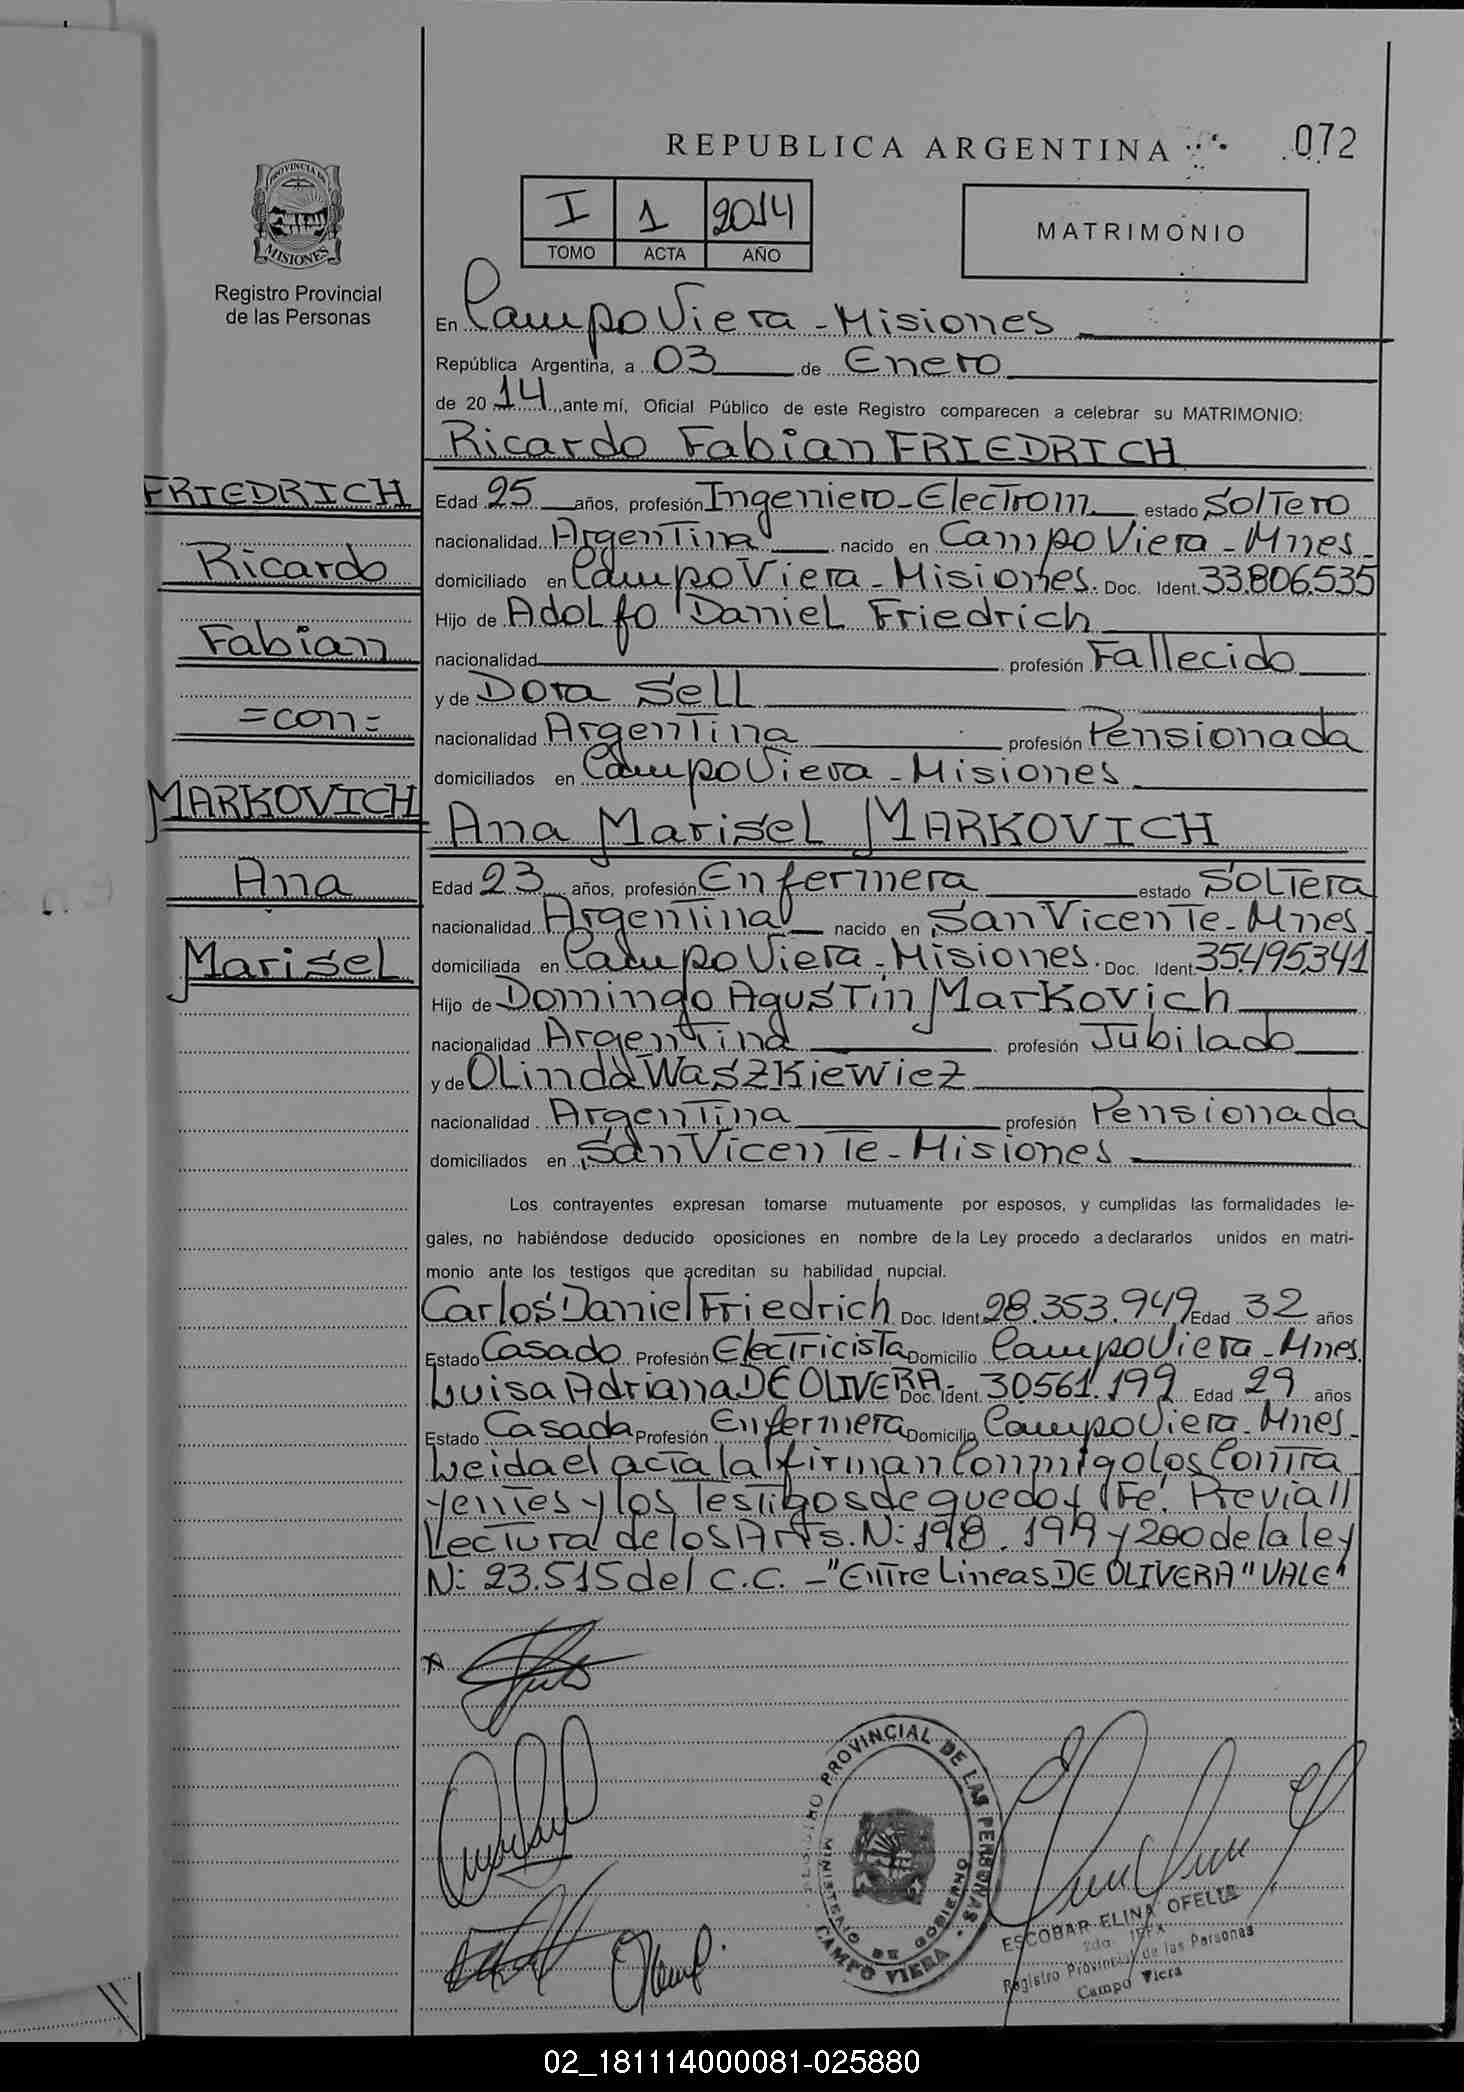 REPUBLICA ARGENTINA
072
PROVINCIA DE
MISIONES
Registro Provincial
de las Personas
I 1 2014
TOMO ACTA AÑO
MATRIMONIO
En Campo Viera - Misiones
República Argentina, a 03 de Enero
de 2014, ante mí, Oficial Público de este Registro comparecen a celebrar su MATRIMONIO:
Ricardo Fabian FRIEDRICH
FRIEDRICH
Ricardo
Fabian
=con=
MARKOVICH
Ana
Marisel
Edad 25 años, profesión Ingeniero-Electrom estado Soltero
nacionalidad Argentina nacido en Campo Viera - Mnes
domiciliado en Campo Viera - Misiones. Doc. Ident. 33.806.535
Hijo de Adolfo Daniel Friedrich
nacionalidad profesión Fallecido
y de Dora Sell
nacionalidad Argentina profesión Pensionada
domiciliados en Campo Viera - Misiones
Ana Marisel MARKOVICH
Edad 23 años, profesión Enfermera estado Soltera
nacionalidad Argentina nacido en San Vicente - Mnes
domiciliada en Campo Viera - Misiones. Doc. Ident. 35.495.341
Hijo de Domingo Agustín Markovich
nacionalidad Argentina profesión Jubilado
y de Olinda Waszkiewiez
nacionalidad Argentina profesión Pensionada
domiciliados en San Vicente - Misiones
Los contrayentes expresan tomarse mutuamente por esposos, y cumplidas las formalidades le-
gales, no habiéndose deducido oposiciones en nombre de la Ley procedo a declararlos unidos en matri-
monio ante los testigos que acreditan su habilidad nupcial.
Carlos Daniel Friedrich Doc. Ident 28.353.949 Edad 32 años
Estado Casado Profesión Electricista Domicilio Campo Viera - Mnes.
Luisa Adriana DE OLIVERA - Doc. Ident. 30561.199 Edad 29 años
Estado Casada Profesión Enfermera Domicilio Campo Viera - Mnes
Leida el acta la firman conmigo los contra
yentes y los testigos de que doy Fé. Previa//
Lectura de los Arts. N: 198. 199 y 200 de la ley
N: 23.515 del C.C. - "Entre Lineas DE OLIVERA" VALE"
REGISTRO PROVINCIAL DE LAS PERSONAS
MINISTERIO DE GOBIERNO
CAMPO VIERA
ESCOBAR ELINA OFELIA
2da. JEFA
Registro Provincial de las Personas
Campo Viera
02_181114000081-025880